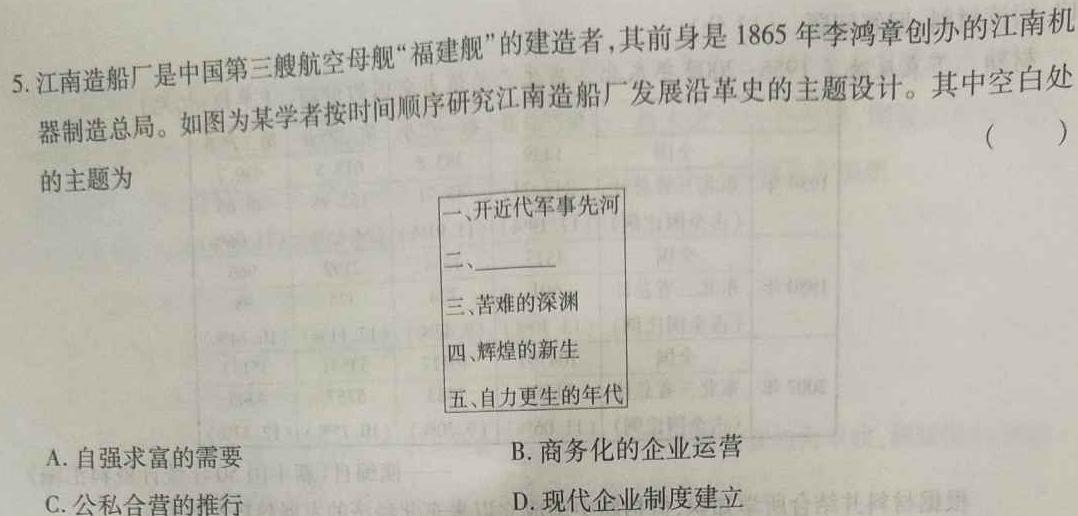 5. 江南造船厂是中国第三艘航空母舰“福建舰”的建造者,其前身是1865年李鸿章创办的江南机
器制造总局。如图为某学者按时间顺序研究江南造船厂发展沿革史的主题设计。其中空白处
的主题为 ( )
一、开近代军事先河
二、________
三、苦难的深渊
四、辉煌的新生
五、自力更生的年代
A. 自强求富的需要
B. 商务化的企业运营
C. 公私合营的推行
D. 现代企业制度建立